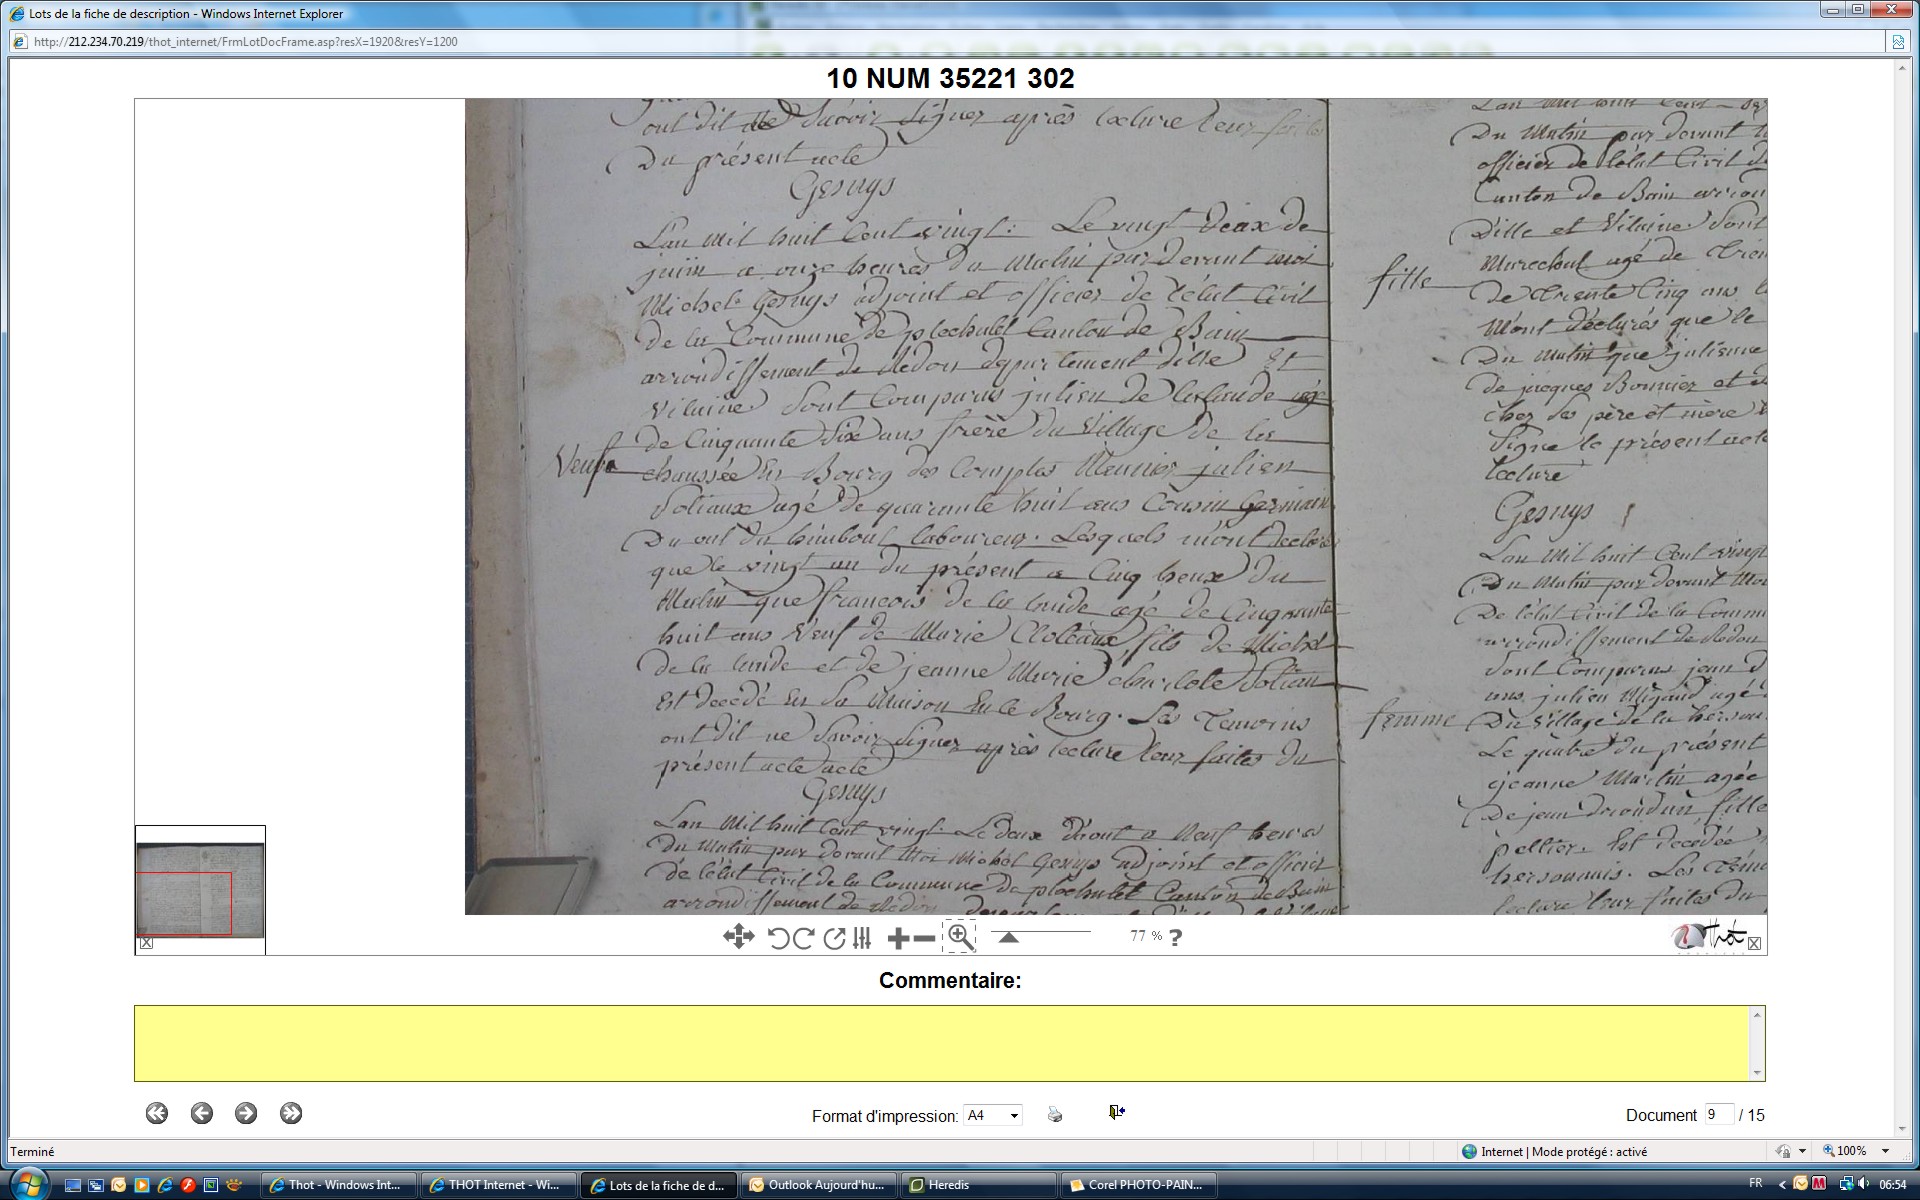 Lots de la fiche de description - Windows Internet Explorer
http://212.234.70.219/thot_internet/FrmLotDocFrame.asp?resX=1920&resY=1200
10 NUM 35221 302
ont dit ne Savoir Signer après lecture leur faite
Du présent acte
Gesnys
Lan Mil huit Cent vingt. Le vingt Deux de
juin a onze heures du Matin par devant moi
Michel Gesnys adjoint et officier de l'état Civil
de la Commune de plechatel Canton de Bain
arrondissement de Redon departement dille Et
Vilaine Sont Comparus julien de lalande agé
de Cinquante Six ans frère du Village de la
Veuf
chaussée En Bourg des Comptes Meunier julien
Soliaux agé de quarante huit ans Cousin Germain
Du val du laboureur. Lesquels m'ont declaré
que le vingt un du présent a Cinq heux du
Matin que francois de la lande agé de Cinquante
huit ans Veuf de Marie fils de Michel
de la lande et de jeanne Marie charlote
Est decedé En Sa Maison En le Bourg. Les Temoins
ont dit ne Savoir Signer après lecture leur faites du
présent acte acte
Gesnys
Lan Mil huit Cent vingt. Le Deux a Neuf heures
Du Matin par devant Moi Michel Gesnys adjoint et officier
De l'état Civil de la Commune de plechatel Canton de Bain
arrondissement de Redon
Du Matin par devant
officier de l'état Civil
Canton de Bain
Dille et Vilaine Sont
Marechal agé de
fille
De Trente Cinq ans
M'ont déclarés que le
Du Matin que julienne
de jacques Bonnier et
chez Ses père et mère
Signé le présent acte
lecture
Gesnys
Lan Mil huit Cent vingt
Du Matin par devant Moi
De l'état Civil de la
arrondissement de Redon
Sont Comparus jean
ans julien agé
femme
Du Village de la
Le quatre du présent
jeanne Martin agée
De jean fille
pellier. Est decedée
Les
lecture leur faites du
77 % ?
Thot
Commentaire:
Format d'impression: A4
Document 9 / 15
Terminé
Internet | Mode protégé : activé
100%
Thot - Windows Int...
THOT Internet - Wi...
Lots de la fiche de d...
Outlook Aujourd'hu...
Heredis
Corel PHOTO-PAIN...
FR
06:54